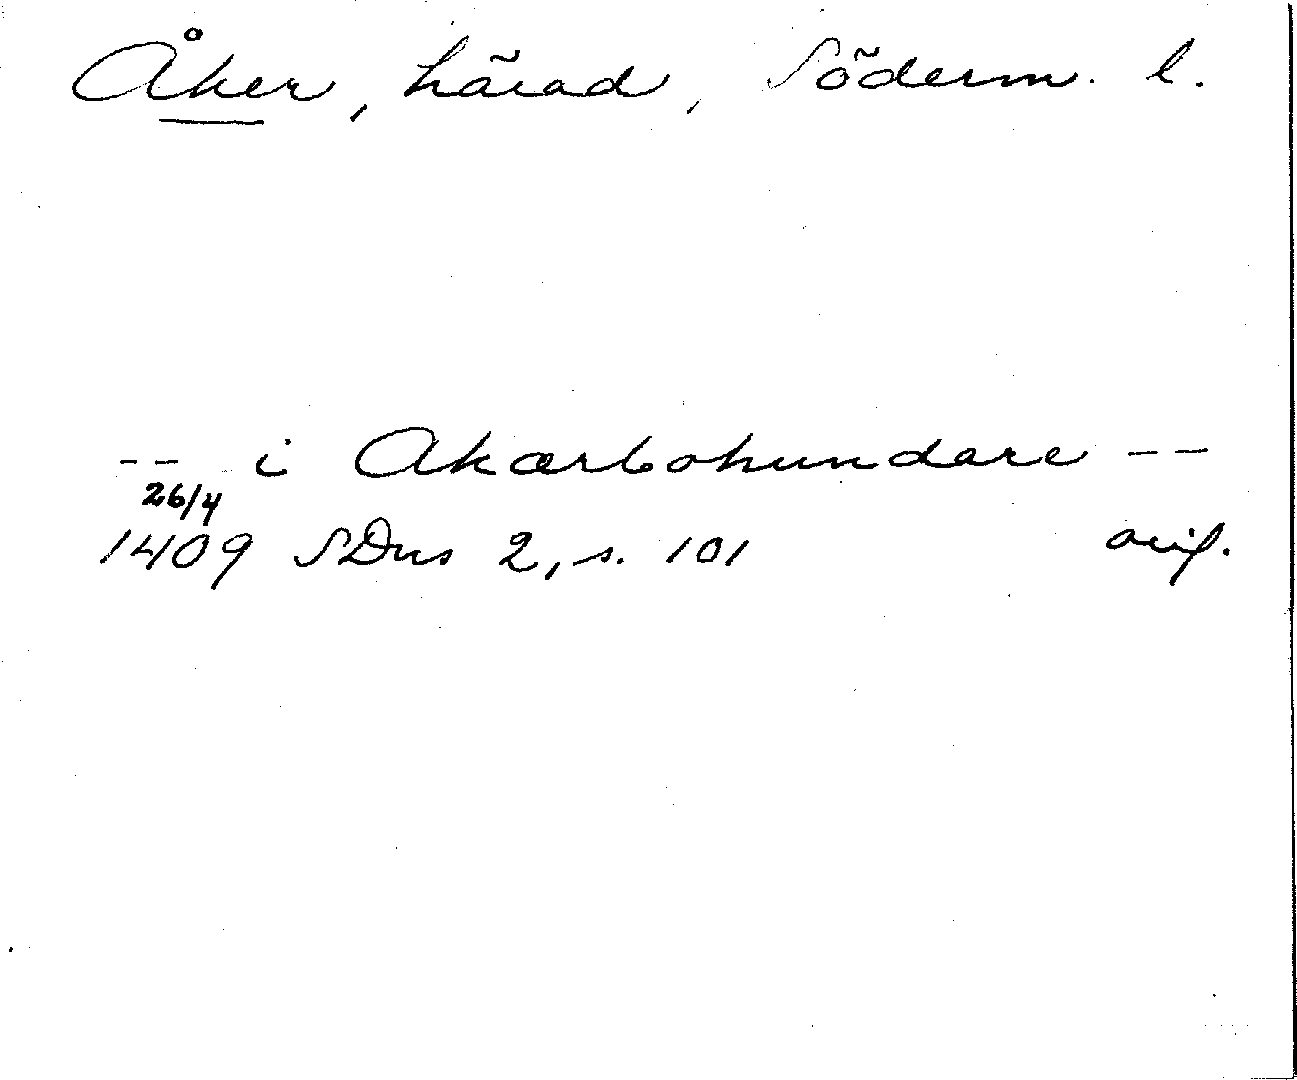 Åker, härad, Söderm. l.
-- i Akærbohundare --
26/4
1409 SDns 2, s. 101 orig.